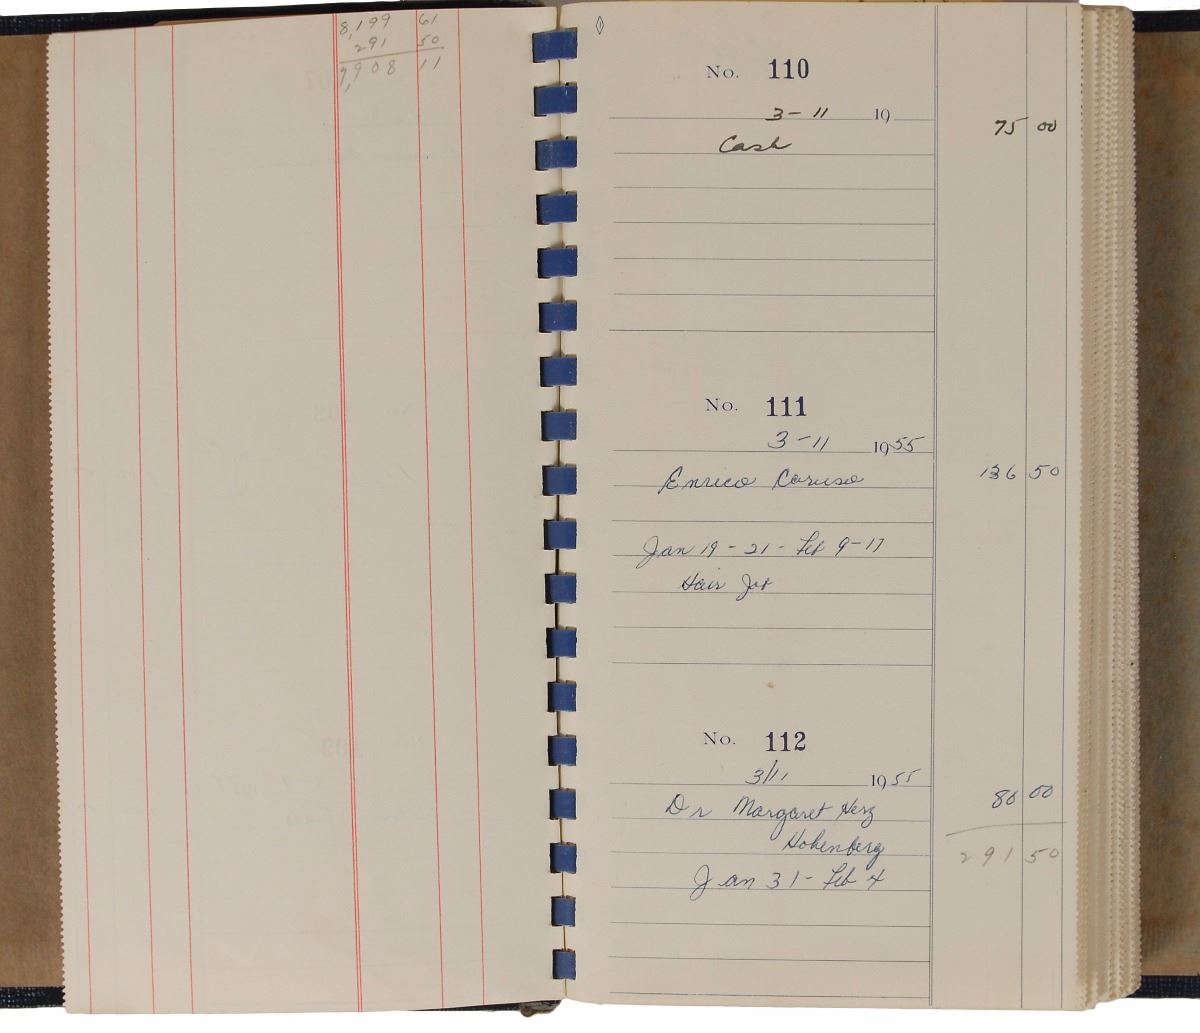 8,199 61
291 50
7,908 11
No. 110
3-11 19
75 00
Cash
No. 111
3-11 1955
Enrico Caruso 136 50
Jan 19-21- Feb 9-17
Hair
No. 112
3/11 1955
80 00
Dr Margaret Herz
Hohenberg
291 50
Jan 31- Feb 4